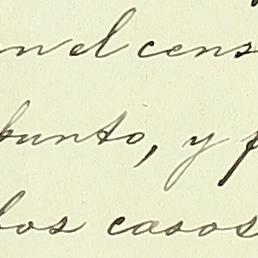 en el cens
punto, y f
los casos